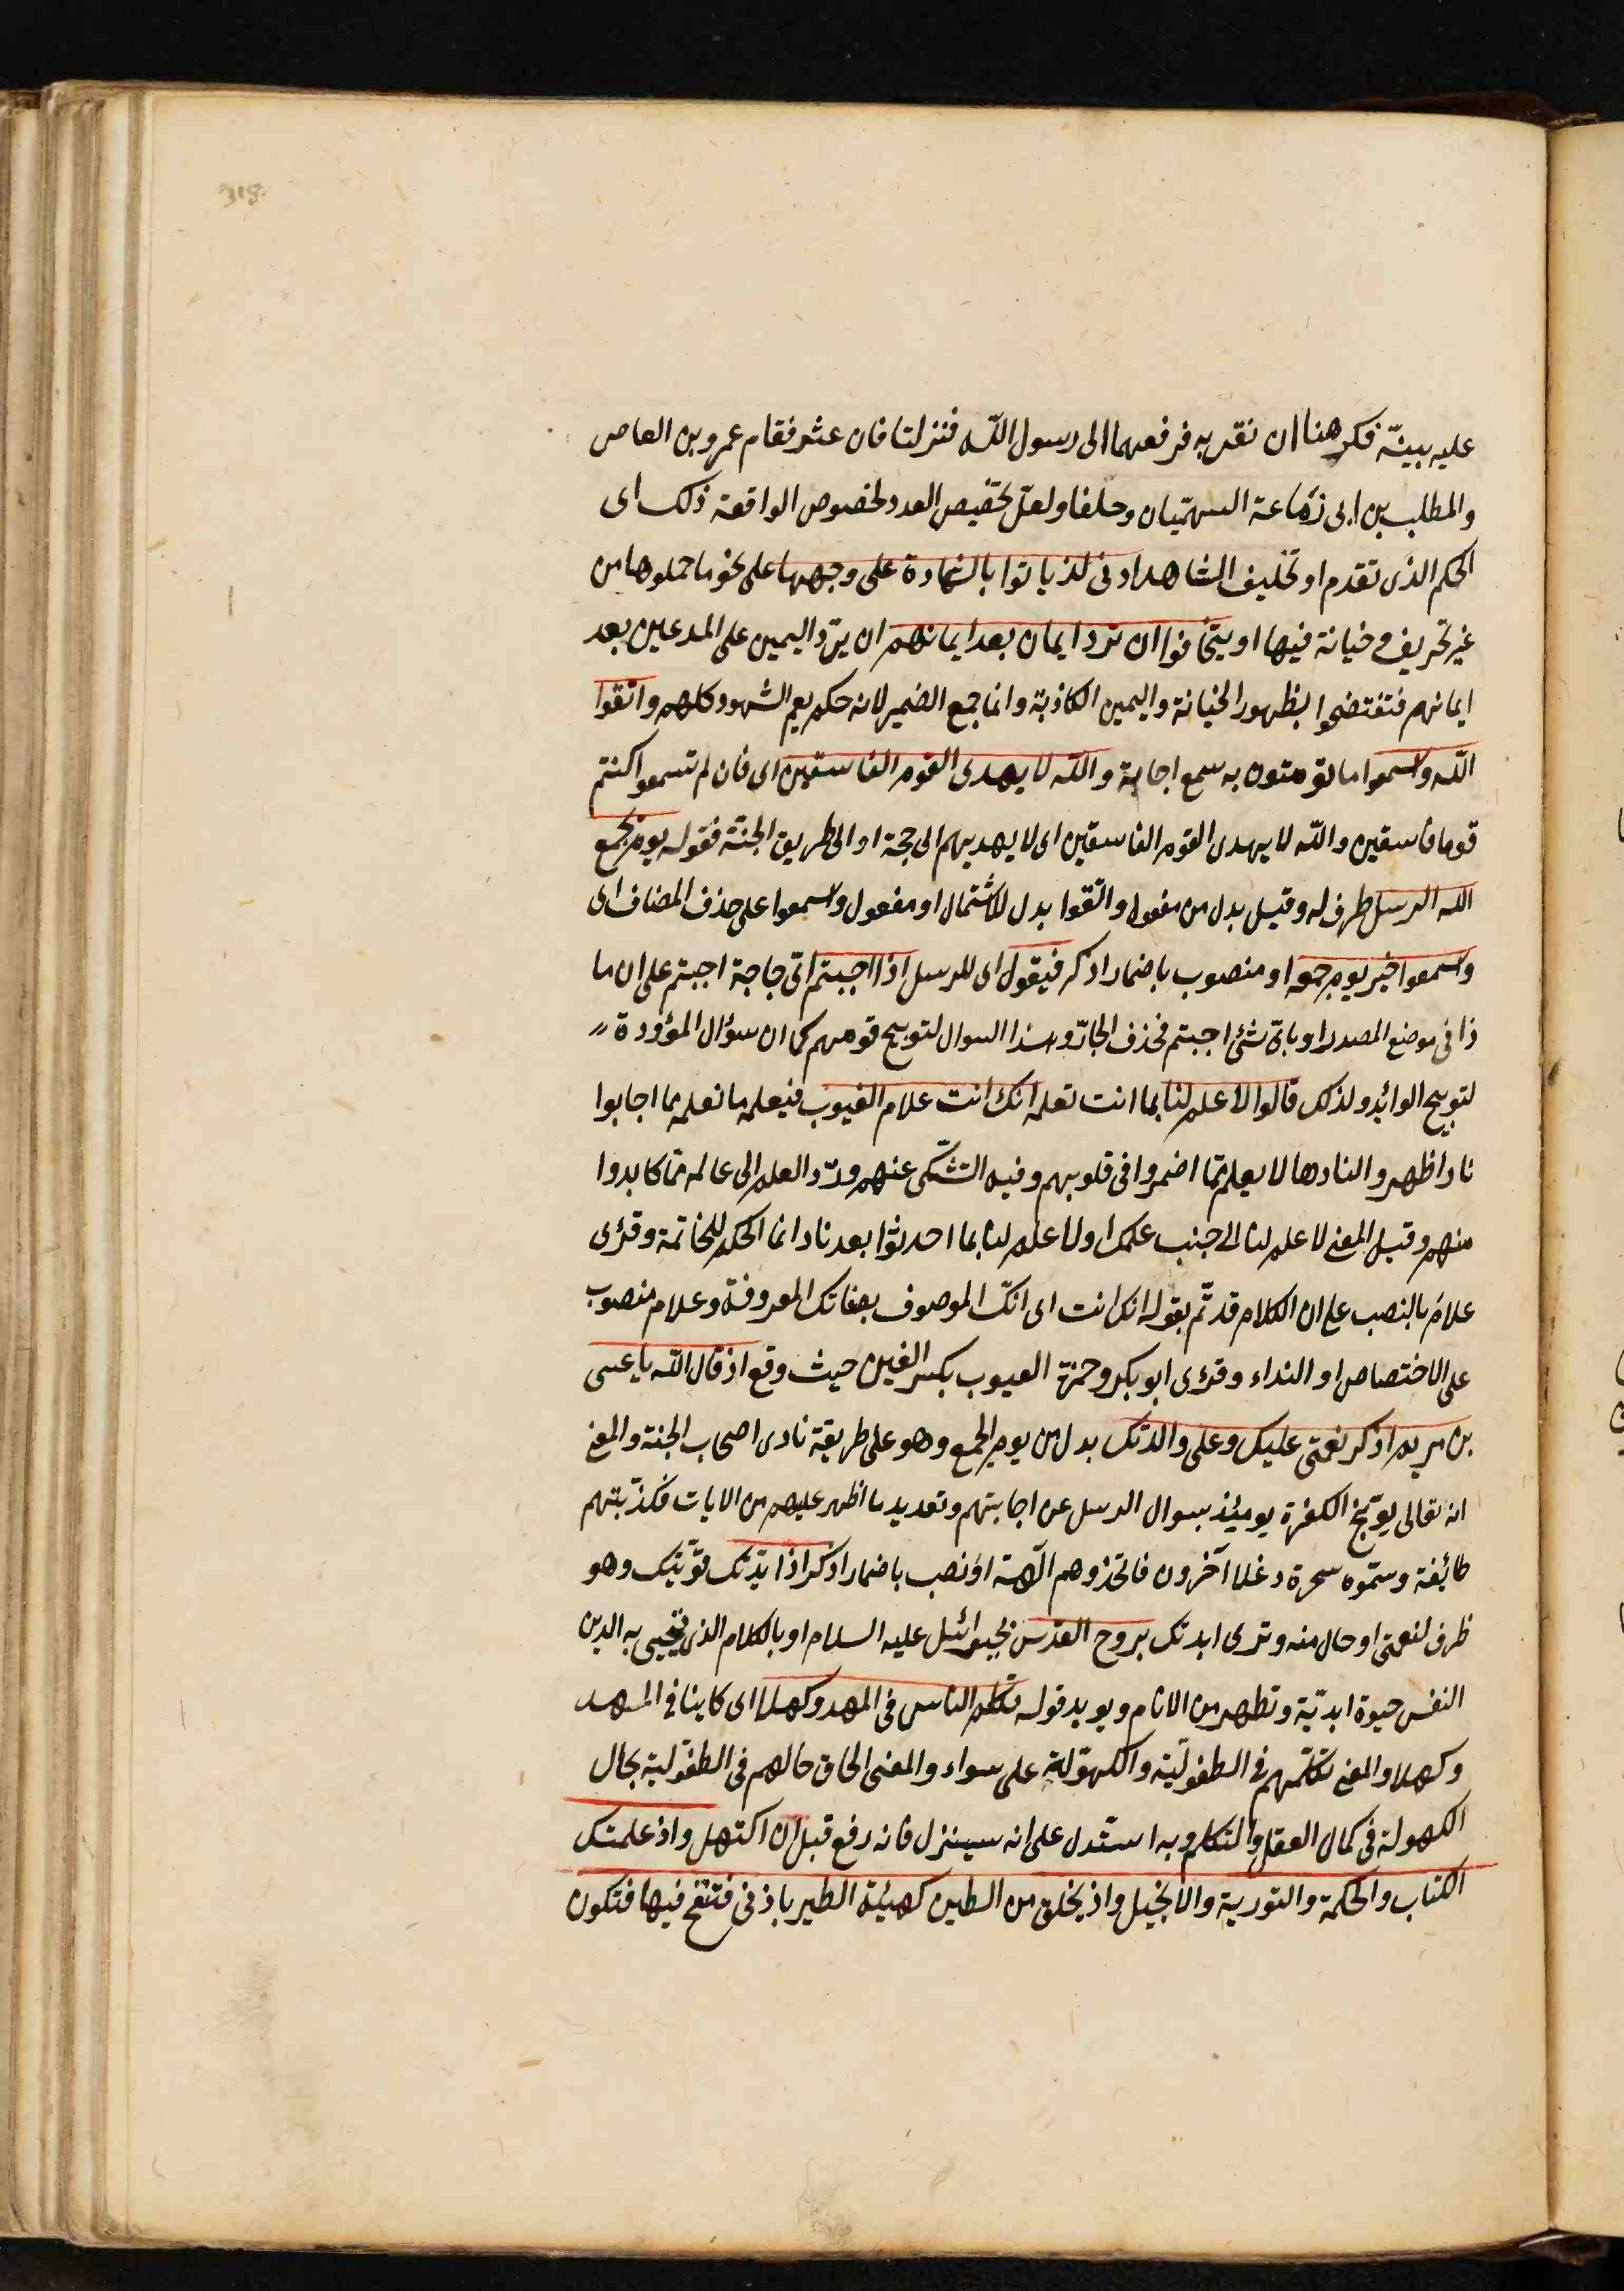 318
عليه ببينة فكرهنا ان نقر به فرفعهما الى رسول الله فنزلتا فان عثر فقام عمرو بن العاص
والمطلب بن ابى زماعة السهميان وحلفا ولعل تخصيص العدد لخصوص الواقعة ذلك اى
الحكم الذى تقدم او تحليف الشاهد ادنى لن ياتوا بالشهادة على وجهها على نحو ما حملوها من
غير تحريف و خيانة فيها او يخافوا ان ترد ايمان بعد ايمانهم ان يرّد اليمين على المدعين بعد
ايمانهم فتفتضحوا بظهور الخيانة واليمين الكاذبة وانما جمع الضمير لانه حكم يعم الشهود كلهم واتقوا
الله واسمعوا ما توصون به سمع اجابة والله لا يهدى القوم الفاسقين اى فان لم تسمعوا كنتم
قوما فاسقين والله لا يهدى القوم الفاسقين اى لا يهديهم الى حجة او الى طريق الجنّة فقوله يوم يجمع
الله الرسل ظرف له وقيل بدل من مفعول واتّقوا بدل الاشتمال او مفعول واسمعوا على حذف المضاف اى
واسمعوا خبر يوم جمعه او منصوب باضمار اذكر فيقول اى للرسل اذا اجبتم اىّ جاجة اجبتم على ان ما
ذا فى موضع المصدر او باىّ شئ اجبتم فحذف الجارّ وهذا السوال لتوبيخ قومهم كما ان سؤال المؤودة
لتوبيخ الوائد ولذلك قالوا لا علم لنا بما انت تعلمه انك انت علام الغيوب فيعلم ما نعلمه مما اجابوا
نا واظهروا لنا وما لا يعلم مّما اضمروا فى قلوبهم وفيه التشّكى عنهم وردّ العلم الى عالمه مّما كابدوا
منهم وقيل المعنى لا علم لنا الى جنب علمك او لا علم لنا بما احدثوا بعدنا وانما الحكم للخاتمة وقرى
علام بالنصب على ان الكلام قد تّم بقوله انك انت اى انكّ الموصوف بصفاتك المعروفة وعلام منصوب
على الاختصاص او النداء وقرى ابو بكر وحمزة الغيوب بكسر الغين حيث وقع اذ قال الله يا عيسى
بن مريم اذكر نعمتى عليك وعلى والدتك بدل من يوم الجمع وهو على طريقة نادى اصحاب الجنة والمعنى
انه تعالى يوّبخ الكفرة يومئذ بسوال الرسل عن اجابتهم وتعديد ما اظهر عليهم من الايات فكذّبتهم
طائفة وسمّوه سحرة وغلا آخرون فاتخذوهم آلهة او نصب باضمار اذكر اذا يدّتك قوّيتك وهو
ظرف لنعمتى او حال منه وقرى ايدتك بروح القدس بجبرائيل عليه السلام او بالكلام الذى يحيى به الدين
النفس حيوة ابديّة وتطهر من الاثام ويويد قوله تكلم الناس فى المهد وكهلا اى كاينا فى المهد
وكهلا والمعنى تكلّمهم فى الطفوليّة والكهوّلة على سواء والمعنى الحاق حالهم فى الطفوّلية بحال
الكهولة فى كمال العقل والتكلم وبه استّدل على انه سينزل فانه رفع قبل ان اكتهل واذ علمتك
الكتاب والحكمة والتورية والانجيل واذ يخلق من الطين كهيئة الطير باذنى فتنفخ فيها فتكون